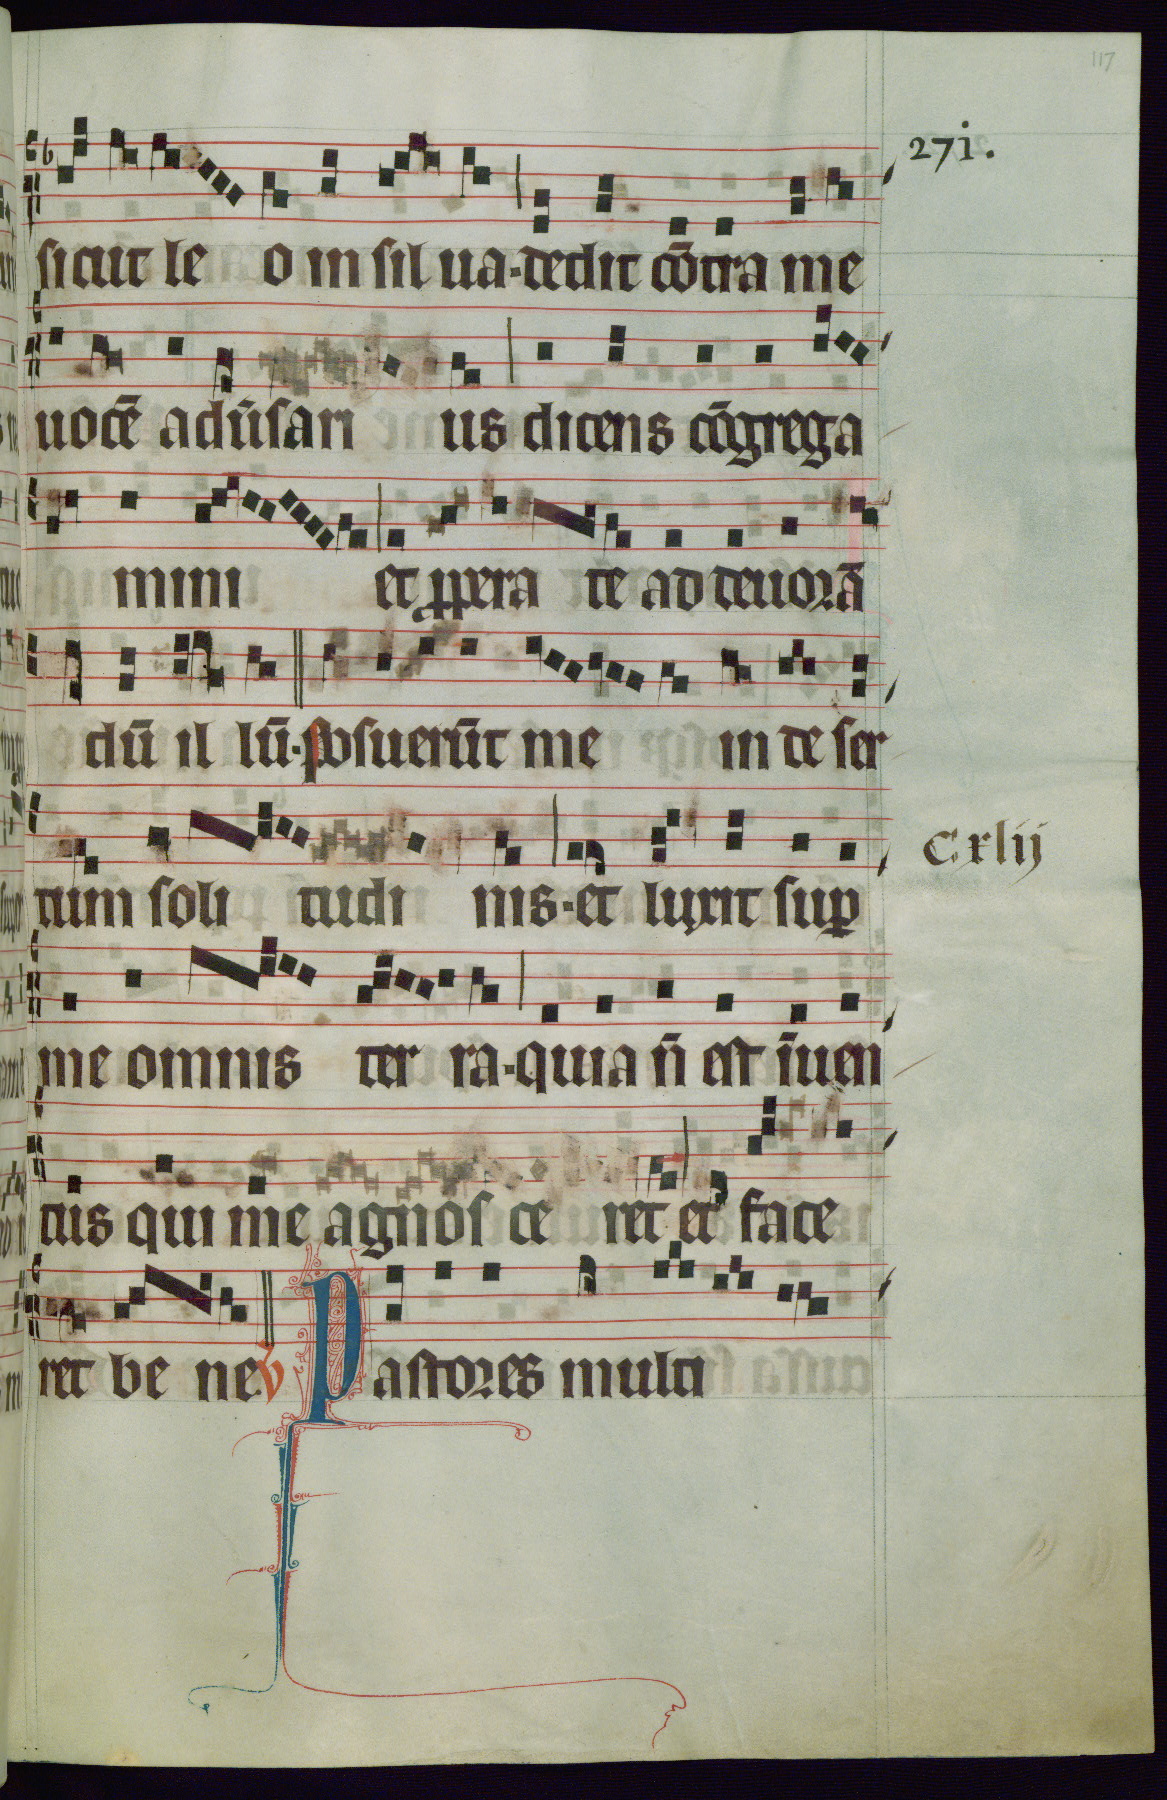 117
27i.
sicut le o in sil ua·dedit cōtra me
uocē adūsari us dicens cōgrega
mini et ꝓpera te ad deuorā
dū il lū·posuerūt me in de ser
Cxlij
tum soli tudi nis·et luxit suꝑ
me omnis ter ra·quia n̄ est īuen
tus qui me agnos ce ret et face
ret be ne. V Pastores multi